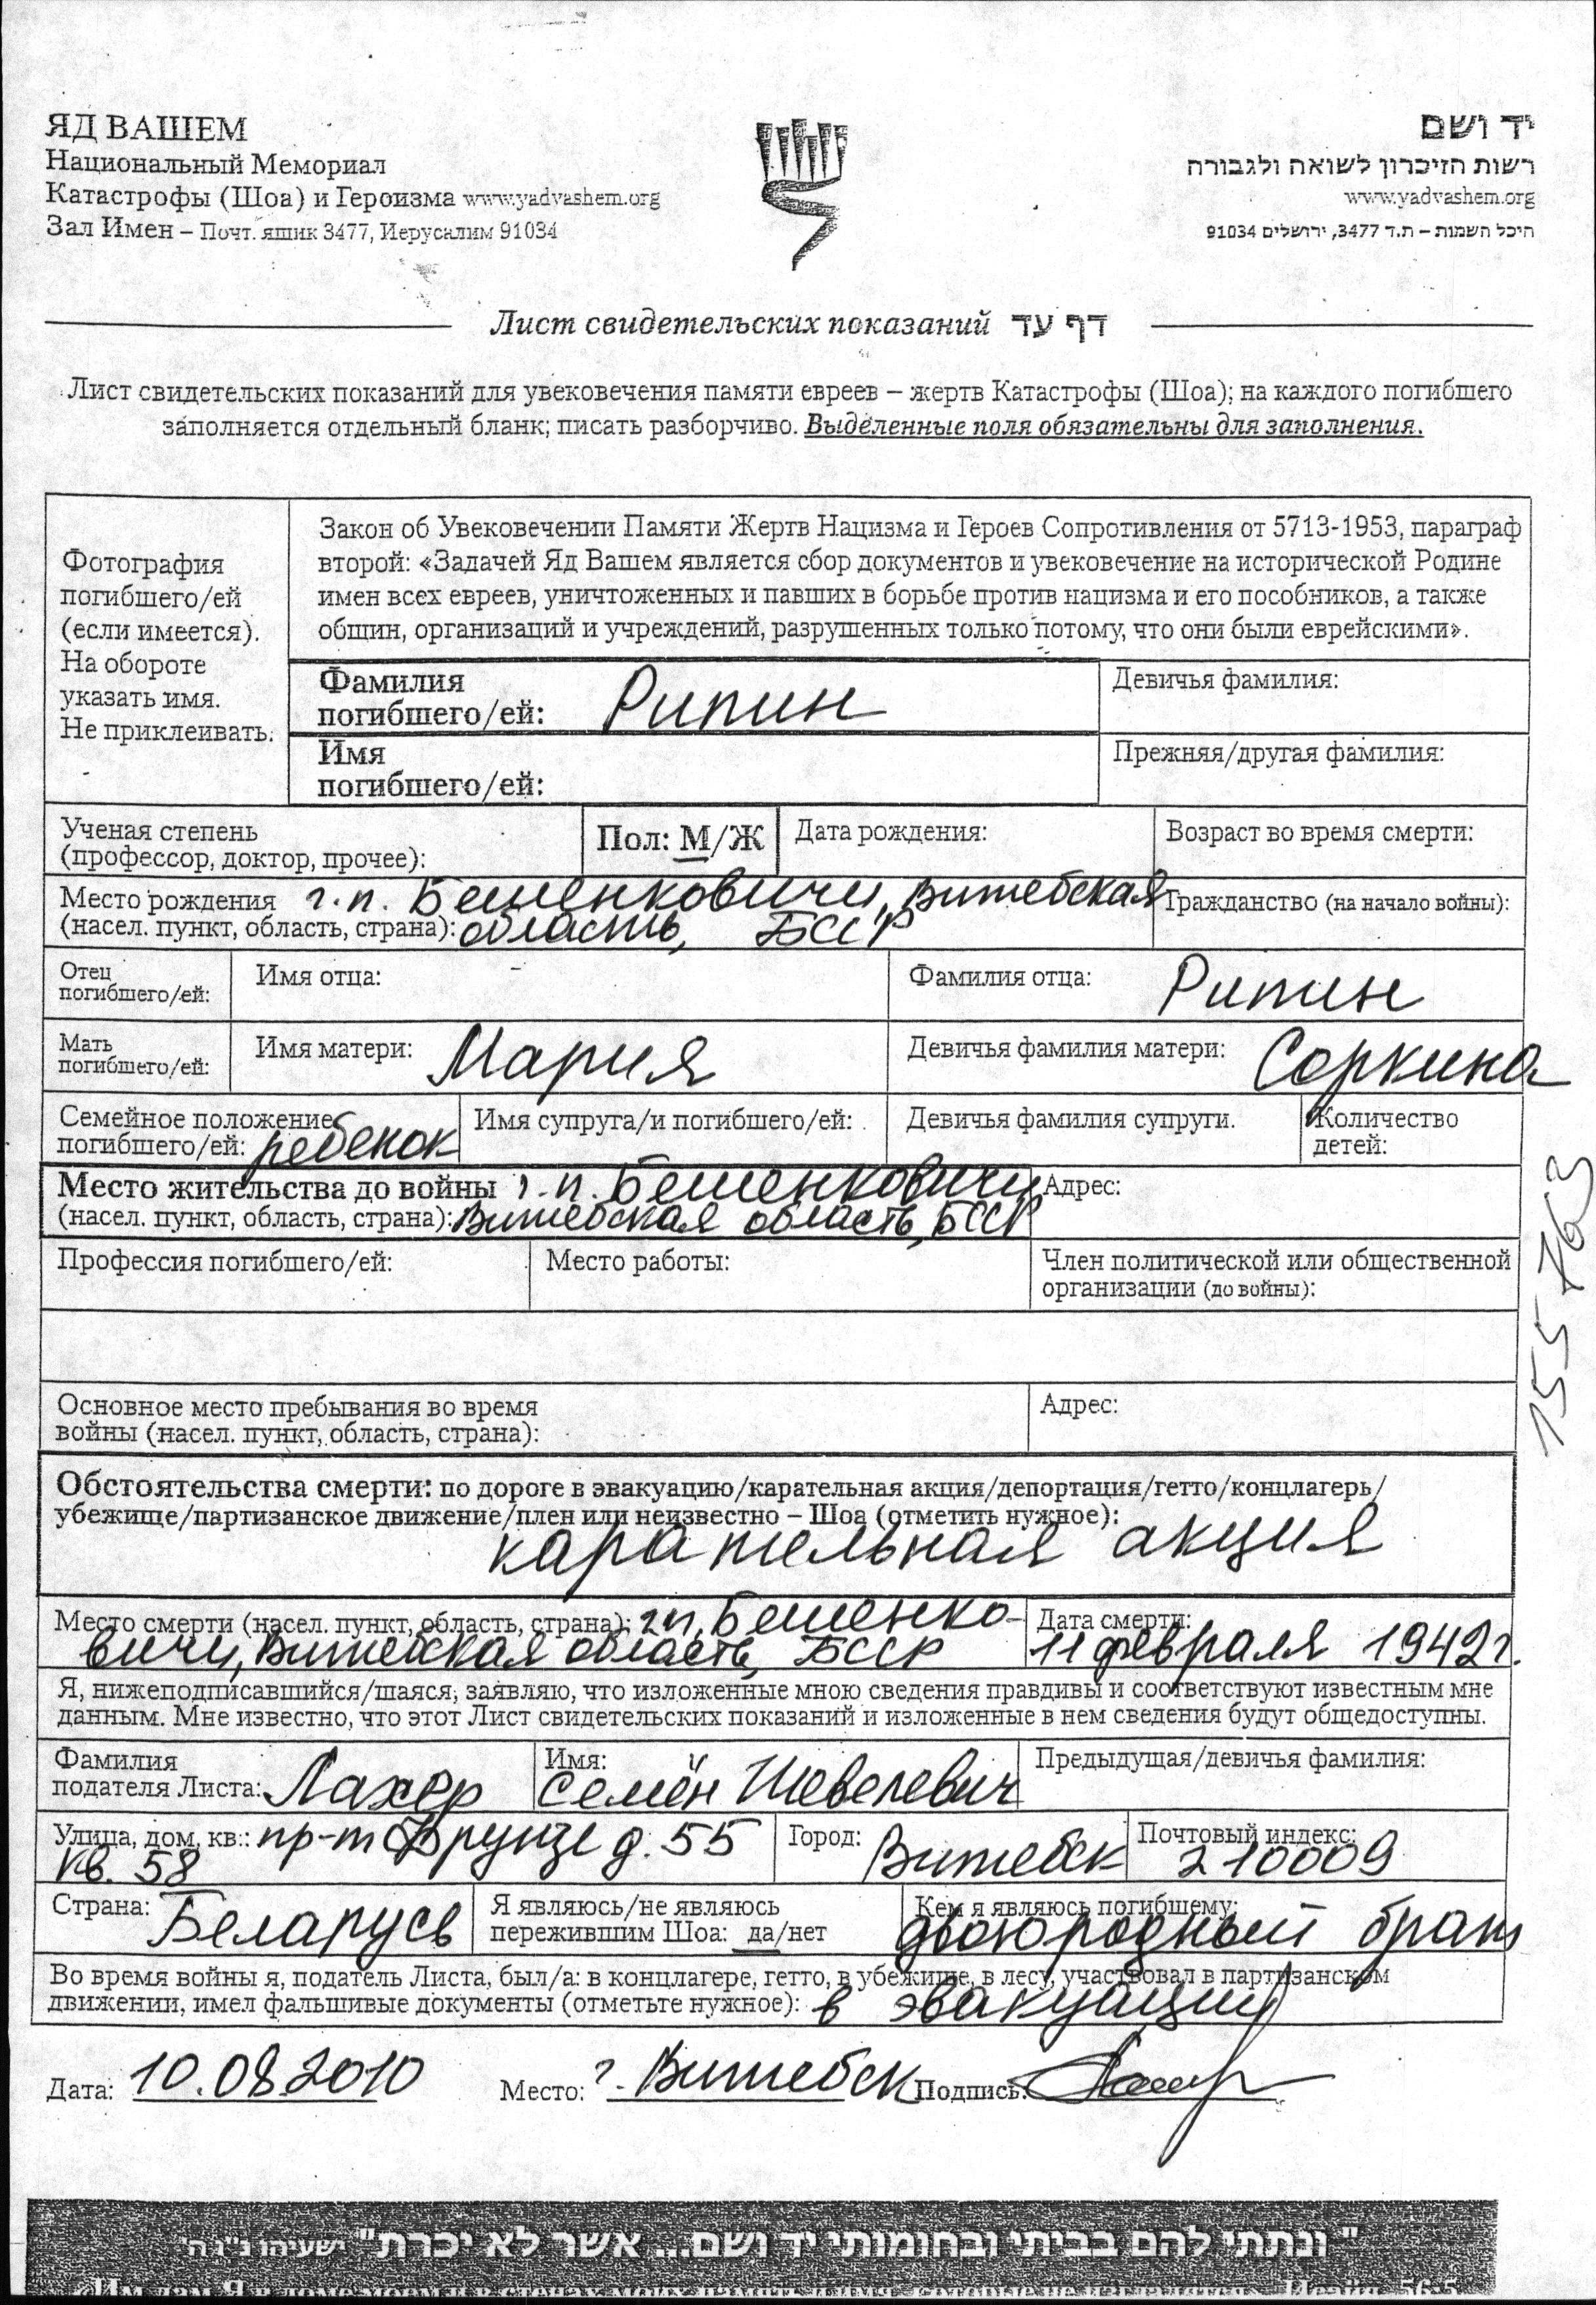 ЯД ВАШЕМ
Национальный Мемориал
Катастрофы (Шоа) и Героизма www.yadvashem.org
Зал Имен – Почт. ящик 3477, Иерусалим 91034
יד ושם
רשות הזיכרון לשואה ולגבורה
www.yadvashem.org
היכל השמות – ת.ד 3477, ירושלים 91034
Лист свидетельских показаний דף עד
Лист свидетельских показаний для увековечения памяти евреев – жертв Катастрофы (Шоа); на каждого погибшего
заполняется отдельный бланк; писать разборчиво. Выделенные поля обязательны для заполнения.
Фотография
погибшего/ей
(если имеется).
На обороте
указать имя.
Не приклеивать.
Закон об Увековечении Памяти Жертв Нацизма и Героев Сопротивления от 5713-1953, параграф
второй: «Задачей Яд Вашем является сбор документов и увековечение на исторической Родине
имен всех евреев, уничтоженных и павших в борьбе против нацизма и его пособников, а также
общин, организаций и учреждений, разрушенных только потому, что они были еврейскими».
Фамилия
погибшего/ей: Рипин
Девичья фамилия:
Имя
погибшего/ей:
Прежняя/другая фамилия:
Ученая степень
(профессор, доктор, прочее):
Пол: М/Ж
Дата рождения:
Возраст во время смерти:
Место рождения г.п. Бешенковичи, Витебская
(насел. пункт, область, страна): область, БССР
Гражданство (на начало войны):
Отец
погибшего/ей:
Имя отца:
Фамилия отца: Рипин
Мать
погибшего/ей:
Имя матери: Мария
Девичья фамилия матери: Соркина
Семейное положение
погибшего/ей: ребенок
Имя супруга/и погибшего/ей:
Девичья фамилия супруги.
Количество
детей:
Место жительства до войны г.п. Бешенковичи
(насел. пункт, область, страна): Витебская область, БССР
Адрес:
Профессия погибшего/ей:
Место работы:
Член политической или общественной
организации (до войны):
Основное место пребывания во время
войны (насел. пункт, область, страна):
Адрес:
Обстоятельства смерти: по дороге в эвакуацию/карательная акция/депортация/гетто/концлагерь/
убежище/партизанское движение/плен или неизвестно – Шоа (отметить нужное):
карательная акция
Место смерти (насел. пункт, область, страна): гп. Бешенко-
вичи, Витебская область, БССР
Дата смерти:
11 февраля 1942 г.
Я, нижеподписавшийся/шаяся, заявляю, что изложенные мною сведения правдивы и соответствуют известным мне
данным. Мне известно, что этот Лист свидетельских показаний и изложенные в нем сведения будут общедоступны.
Фамилия
подателя Листа: Лахер
Имя:
Семён Шевелевич
Предыдущая/девичья фамилия:
Улица, дом, кв.: пр-т Фрунзе д. 55
кв. 58
Город: Витебск
Почтовый индекс:
210009
Страна: Беларусь
Я являюсь/не являюсь
пережившим Шоа: да/нет
Кем я являюсь погибшему:
двоюродный брат
Во время войны я, податель Листа, был/а: в концлагере, гетто, в убежище, в лесу, участвовал в партизанском
движении, имел фальшивые документы (отметьте нужное): в эвакуации
Дата: 10.08.2010 Место: г. Витебск Подпись:
155763
"ונתתי להם בביתי ובחומותי יד ושם... אשר לא יכרת" ישעיהו נ"ו ה'